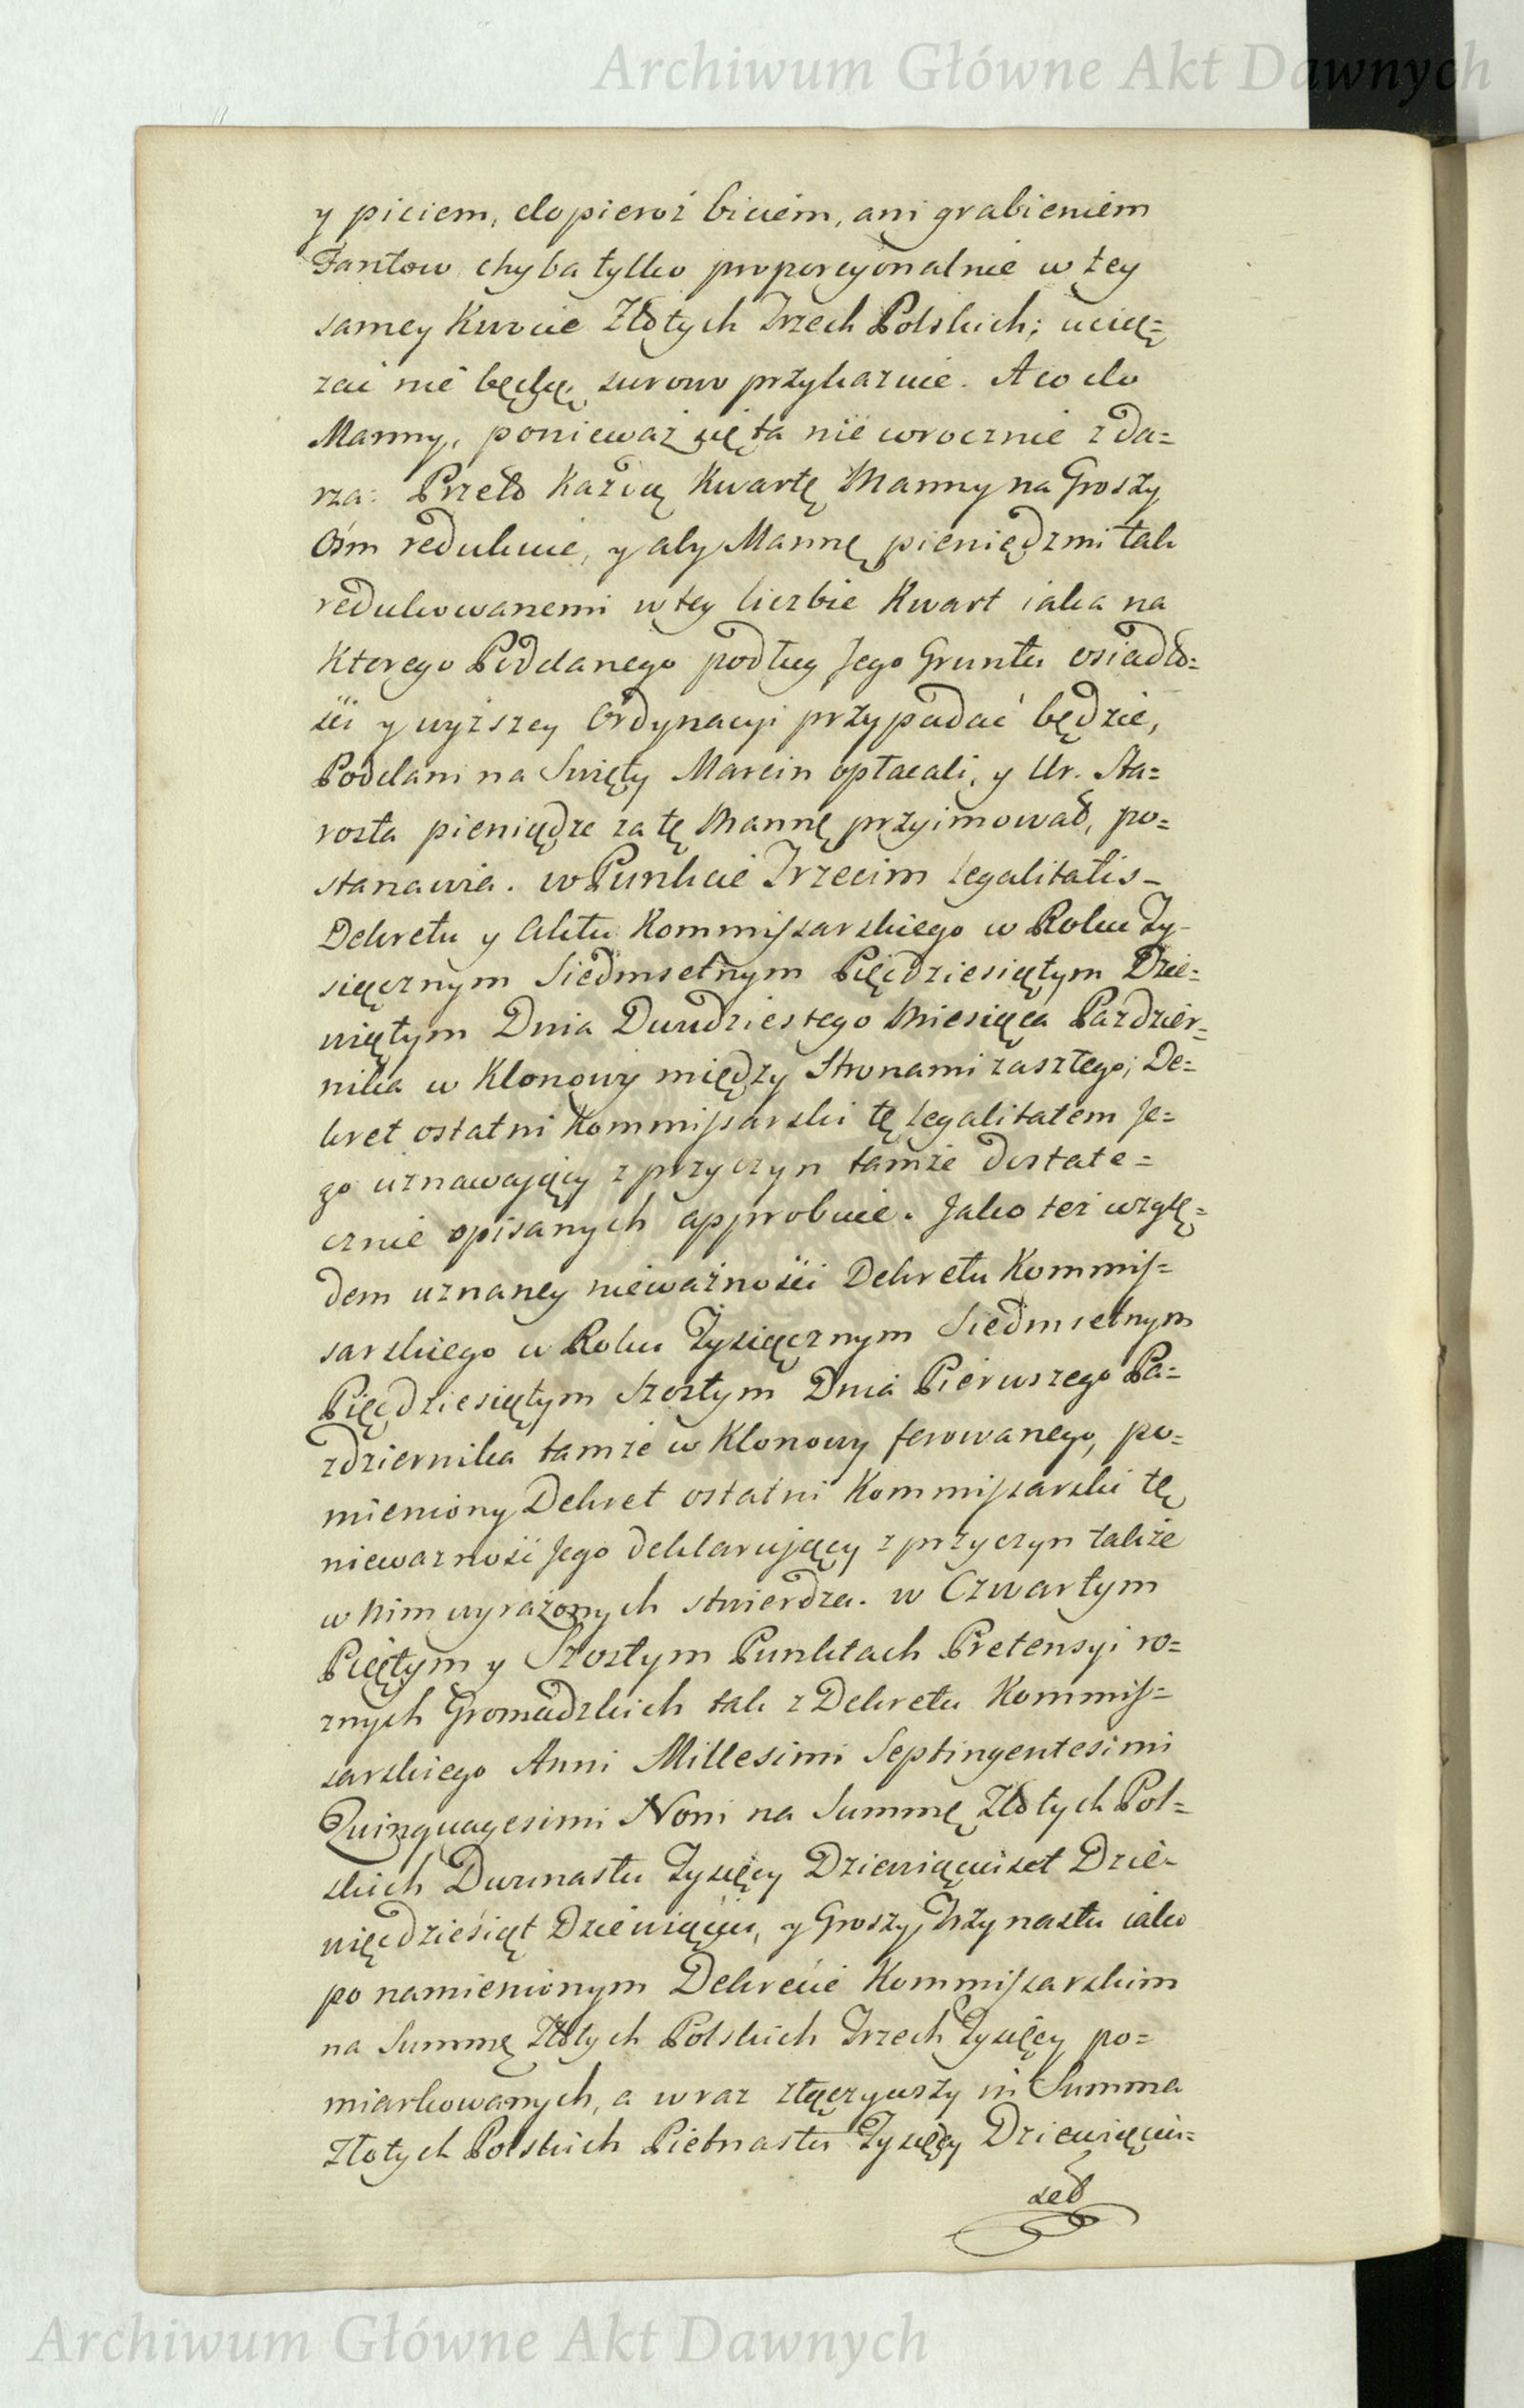 Archiwum Główne Akt Dawnych
y piciem, dopieroż biciem, ani grabieniem
Fantow chyba tylko proporcyonalnie w tey
samey Kwocie Złotych Trzech Polskich; ucię=
żać nie będzię, surowo przykazuie. A co do
Manny, ponieważ się ta nie corocznie zda=
rza: Przeto Każdą Kwartę Manny na Groszy
Ośm redukuie, y aby Mannę pieniędzmi tak
redukowanemi w tey liczbie Kwart iaka na
Ktorego Poddanego podług Jego Gruntu osiadło=
ści y wyższey Ordynacyi przypadać będzie,
Poddani na Swięty Marcin opłacali, y Ur. Sta=
rosta pieniędze za tę Mannę przyimował, po=
stanawia. w Punkcie Trzecim Legalitatis
Dekretu y Aktu Kommissarskiego w Roku Ty=
siącznym Siedmsetnym Pięćdziesiątym Dzie=
wiątym Dnia Dwudziestego Miesiąca Pazdzier=
nika w Klonowy między Stronami zaszłego; De=
kret ostatni Kommissarski tę Legalitatem Je=
go uznawaiący z przyczyn tamże dostate=
cznie opisanych approbuie. Jako też wzglę=
dem uznaney nieważności Dekretu Kommis=
sarskiego w Roku Tysiącznym Siedmsetnym
Pięćdziesiątym Szostym Dnia Pierwszego Pa=
zdziernika tamże w Klonowy ferowanego, po=
mieniony Dekret ostatni Kommissarski tę
nieważność Jego deklarujący z przyczyn także
w nim wyrażonych stwierdza. w Czwartym
Piątym y Szostym Punktach Pretensyi ro=
znych Gromadzkich tak z Dekretu Kommis=
sarskiego Anni Millesimi Septingentesimi
Quinquagesimi Noni na Summę Złotych Pol=
skich Dwunastu Tysięcy Dziewiąciset Dzie=
więćdziesiąt Dziewiąciu, y Groszy Trzynastu iako
po namienionym Dekrecie Kommissarskim
na Summę Złotych Polskich Trzech Tysięcy po=
miarkowanych, a wraz złączywszy in Summa
Złotych Polskich Pietnastu Tysięcy Dziewiąci=
set
Archiwum Główne Akt Dawnych